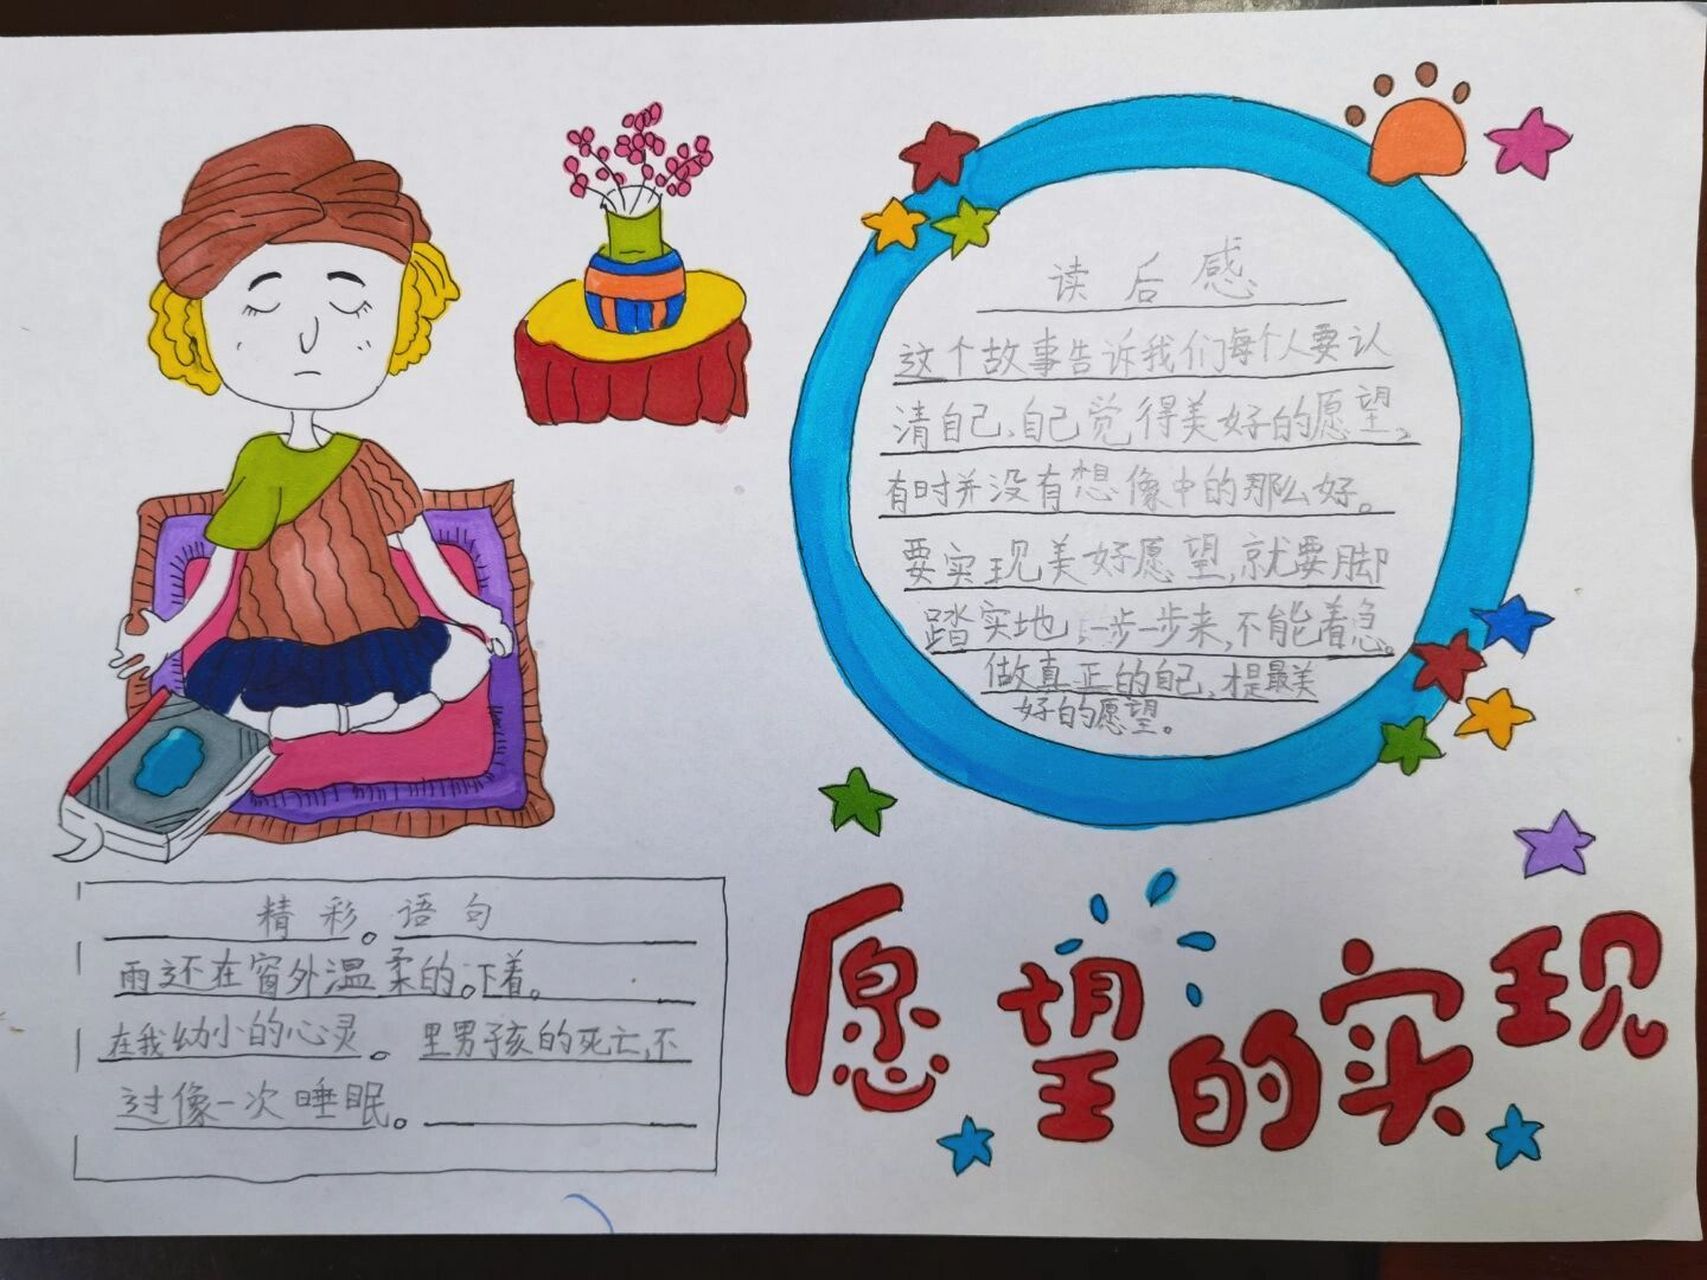 读后感
这个故事告诉我们每个人要认
清自己、自己觉得美好的愿望,
有时并没有想像中的那么好。
要实现美好愿望,就要脚
踏实地,一步一步来,不能着急。
做真正的自己,才是最美
好的愿望。
精彩。语句
雨还在窗外温柔的。下着。
在我幼小的心灵。里男子孩的死亡,不
过像一次睡眠。
愿望的实现